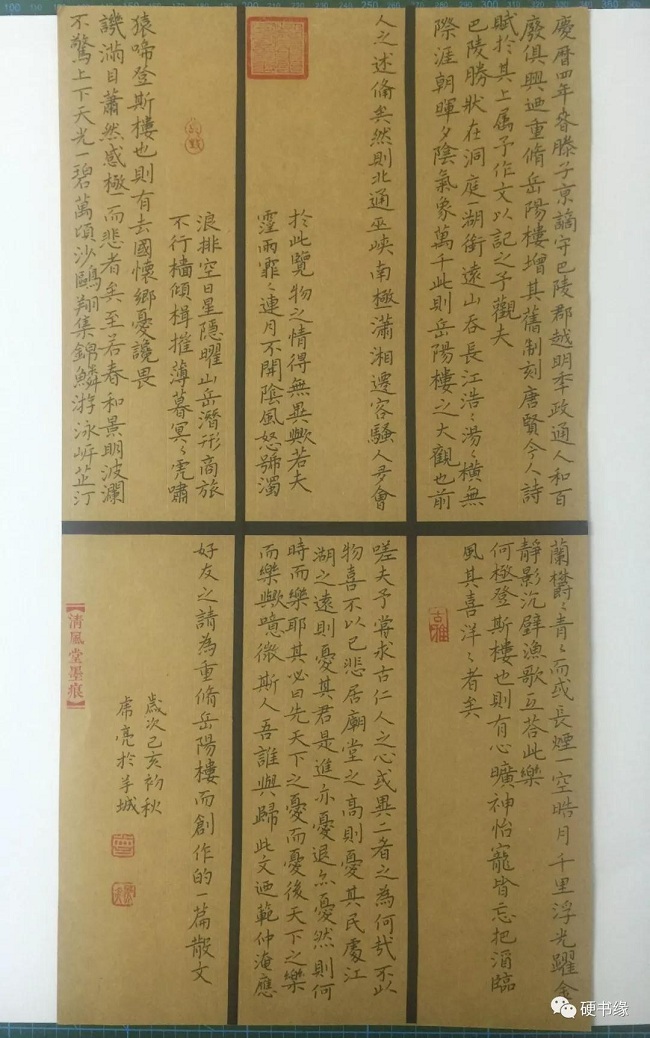 慶曆四年春滕子京謫守巴陵郡越明年政通人和百
廢俱興迺重脩岳陽樓增其舊制刻唐賢今人詩
賦於其上属予作文以記之予觀夫
巴陵勝狀在洞庭一湖銜遠山吞長江浩〻湯〻橫無
際涯朝暉夕陰氣象萬千此則岳陽樓之大觀也前
人之述俻矣然則北通巫峽南極瀟湘遷客騷人多會
於此覽物之情得無異歟若夫
霪雨霏〻連月不開陰風怒號濁
浪排空日星隱曜山岳潛形商旅
不行檣傾楫摧薄暮冥〻虎嘯
猿啼登斯樓也則有去國懷鄉憂讒畏
譏滿目蕭然感極而悲者矣至若春和景明波瀾
不驚上下天光一碧萬頃沙鷗翔集錦鱗游泳岸芷汀
蘭欝〻青〻而或長煙一空皓月千里浮光躍金
靜影沉璧漁歌互荅此樂
何極登斯樓也則有心曠神怡寵皆忘把酒臨
風其喜洋〻者矣
古雅
嗟夫予嘗求古仁人之心或異二者之為何哉不以
物喜不以己悲居廟堂之高則憂其民處江
湖之遠則憂其君是進亦憂退亦憂然則何
時而樂耶其必曰先天下之憂而憂後天下之樂
而樂歟噫微斯人吾誰與歸此文迺範仲淹應
好友之請為重脩岳陽樓而創作的一篇散文
歲次己亥初秋
虎亮於羊城
【清風堂墨痕】
硬书缘